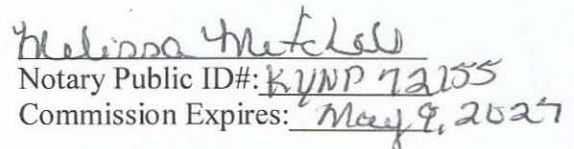 Melissa Mitchell
Notary Public ID#: KYNP 72155
Commission Expires: May 9, 2027